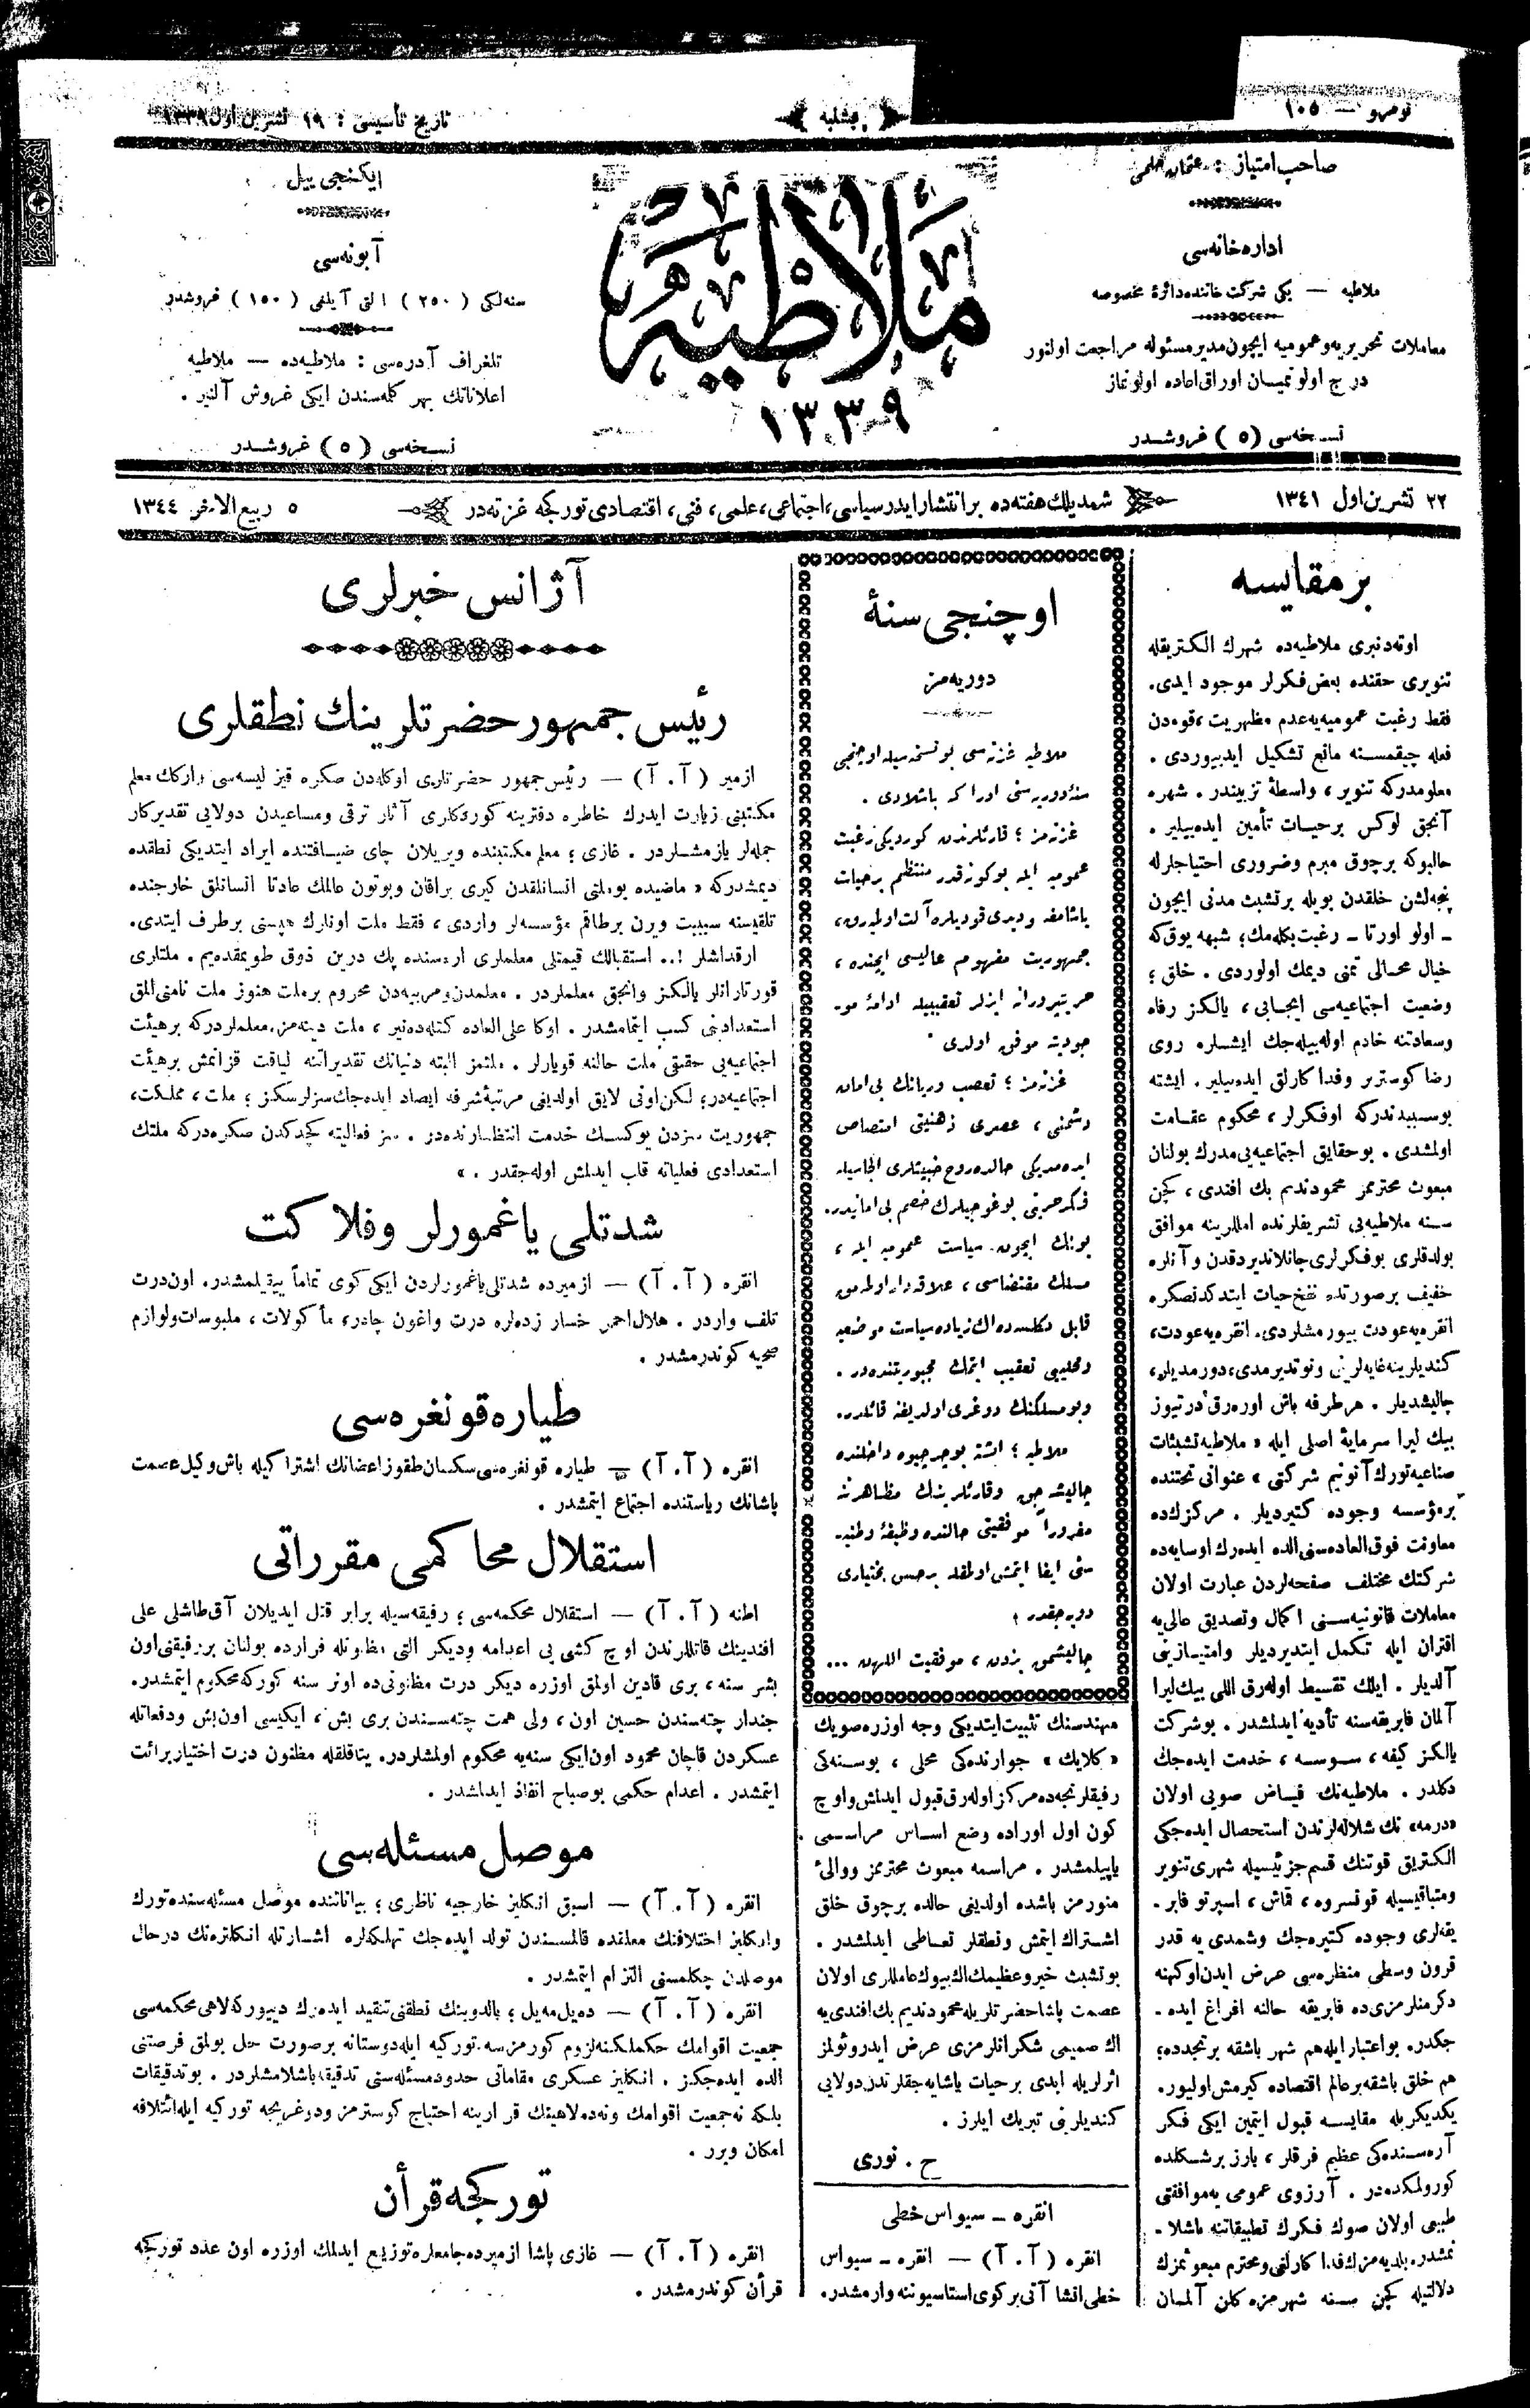 نومرو — ۱۰۵
پنجشنبه
تاریخ تأسیسی : ۱۹ تشرین اول ۱۳۳۹
صاحب امتیاز : عثمان حلمی
اداره‌خانه‌سی
ملاطیه — یکی شرکت خاننده دائرۀ مخصوصه
معاملات تحریریه و عمومیه ایچون مدیر مسئوله مراجعت اولنور
درج اولونمیان اوراق اعاده اولونماز
نسخه‌سی (۵) غروشدر
ملاطیه
۱۳۳۹
ایکنجی ییل
آبونه‌سی
سنه‌لکی (۲۵۰) التی آیلغی (۱۵۰) غروشدر
تلغراف آدره‌سی : ملاطیه‌ده — ملاطیه
اعلاناتك بهر کله‌سندن ایکی غروش آلنیر .
نسخه‌سی (۵) غروشدر
۲۲ تشرین اول ۱۳۴۱
شمدیلك هفته‌ده بر انتشار ایدر سیاسی، اجتماعی، علمی، فنی، اقتصادی تورکجه غزته‌در
۵ ربیع الاخر ۱۳٤٤
بر مقایسه
اوته‌دنبری ملاطیه‌ده شهرك الکتریقله
تنویری حقنده بعض فکرلر موجود ایدی.
فقط رغبت عمومیه‌یه عدم مظهریت، قوه‌دن
فعله چیقمسنه مانع تشکیل ایدییوردی .
معلومدرکه تنویر، واسطۀ تزییندر . شهره
آنجق لوکس بر حیات تأمین ایده‌بیلیر .
حالبوکه بر چوق مبرم وضروری احتیاجلرله
پنجه‌لشن خلقدن بویله بر تشبث مدنی ایچون
ـ اولو اورتا ـ رغبت بکله‌مك؛ شبهه یوق که
خیال محالی تمنی دیمك اولوردی . خلق ؛
وضعیت اجتماعیه‌سی ایجابی، یالکز رفاه
وسعادتنه خادم اوله‌بیله‌جك ایشلره روی
رضا کوسترر وفداکارلق ایده‌بیلیر . ایشته
بوسببدندرکه اوفکرلر، محکوم عقامت
اولمشدی . بو حقایق اجتماعیه‌یی مدرك بولنان
مبعوث محترممز محمود ندیم بك افندی ، کچن
سنه ملاطیه‌یی تشریفلرنده املارینه موافق
بولدقلری بو فکرلری جانلاندیردقدن و آنلره
خفیف بر صورتده نفخ حیات ایتدکدنصکره
انقره‌یه عودت بیورمشلردی. انقره‌یه عودت،
کندیلرینه غایه‌لرینی اونوتدیرمدی، دورمدیلر،
چالیشدیلر . هر طرفه باش اوره‌رق درتیوز
بیك لیرا سرمایۀ اصلی ایله « ملاطیه تشبثات
صناعیه تورك آنونیم شرکتی » عنوانی تحتنده
بر مؤسسه وجوده کتیردیلر . مرکزك ده
معاونت فوق العاده‌سنی الده ایده‌رك اوسایه‌ده
شرکتك مختلف صفحه‌لردن عبارت اولان
معاملات قانونیه‌سنی اکمال وتصدیق عالی‌یه
اقتران ایله تکمل ایتدیردیلر وامتیازینی
آلدیلر . ایلك تقسیط اوله‌رق اللی بیك لیرا
آلمان فابریقه‌سنه تأدیه ایدلمشدر . بو شرکت
یالکز کیفه ، سوسه ، خدمت ایده‌جك
دکلدر . ملاطیه‌نك فیاض صویی اولان
«درمه» نك شلاله‌لرندن استحصال ایده‌جکی
الکتریق قوتنك قسم جزئیسیله شهری تنویر
ومتباقیسیله قونسروه ، قماش ، اسپرتو فابر-
یقه‌لری وجوده کتیره‌جك وشمدی یه قدر
قرون وسطی منظره‌سی عرض ایدن اوکهنه
دکرمنلرمزی ده فابریقه حالنه افراغ ایده-
جکدر. بو اعتبار ایله هم شهر باشقه بر تجدده؛
هم خلق باشقه بر عالم اقتصاده کیرمش اولیور.
یکدیکریله مقایسه قبول ایتمین ایکی فکر
آره‌سنده‌کی عظیم فرقلر ، بارز بر شکلده
کورولمکده‌در . آرزوی عمومی یه موافقتی
طبیعی اولان صوك فکرك تطبیقاتنه باشلا-
نمشدر. بلدیه‌مزك فداکارلغی ومحترم مبعوثمزك
دلالتیله کچن سنه شهرمزه کلن آلمان
اوچنجی سنۀ
دوریه‌مز
ملاطیه غزته‌سی بو نسخه‌سیله اوچنجی
سنۀ دوریه‌سنی ادراکه باشلادی .
غزته‌مز ؛ قارئلرندن کوردیکی رغبت
عمومیه ایله بوکونه قدر منتظم بر حیات
یاشامغه و دیدی قودیلره آلت اولمیه‌رق،
جمهوریت مفهوم عالیسی ایچنده ،
حریتپرورانه ایزلر تعقیبیله ادامۀ مو-
جودیته موفق اولدی .
غزته‌مز ؛ تعصب وریانك بی امان
دشمنی ، عصری ذهنیتی امتصاص
ایده‌مدیکی حالده روح خبیثلری الجاسیله
فکر حریتی بوغوجیلرك خصم بی امانیدر.
بونك ایچون سیاست عمومیه ایله ،
مسلك مقتضاسی ، علاقه‌دار اولمه‌مق
قابل دکلسه‌ده اك زیاده سیاست موضعیه
و محلیه‌یی تعقیب ایتمك مجبوریتنده‌در .
و بو مسلکنك دوغری اولدیغنه قائلدر.
ملاطیه ؛ ایشته بو چرچیوه داخلنده
چالیشه‌جق وقارئلرینك مظاهرتنه
مغروراً موفقیتی حالنده وظیفۀ وطنیه-
سنی ایفا ایتمش اولمقله بر حس بختیاری
دویه‌جقدر ؛
چالیشمق بزدن ، موفقیت اللهدن ...
مهندسنك تثبیت ایتدیکی وجه اوزره صویك
« کلایك » جوارنده‌کی محلی ، بو سنه‌کی
رفیقلرنجه‌ده مرکز اوله‌رق قبول ایدلمش و اوچ
کون اول اوراده وضع اساس مراسمی
یاپیلمشدر . مراسمه مبعوث محترممز ووالئ
منورمز باشده اولدیغی حالده بر چوق خلق
اشتراك ایتمش ونطقلر تعاطی ایدلمشدر .
بو تشبث خیر و عظیمك اك بیوك عامللری اولان
عصمت پاشا حضرتلریله محمود ندیم بك افندی یه
اك صمیمی شکرانلرمزی عرض ایدر و ئولمز
اثرلریله ابدی بر حیات یاشایه‌جقلرندن دولایی
کندیلرینی تبریك ایلرز .
ح . نوری
انقره ـ سیواس خطی
انقره ( آ . آ ) — انقره ـ سیواس
خطی انشاآتی برکوی استاسیوننه وارمشدر.
آژانس خبرلری
رئیس جمهور حضرتلرینك نطقلری
ازمیر ( آ . آ ) — رئیس جمهور حضرتلری اوکله‌دن صکره قیز لیسه‌سی و ارکك معلم
مکتبنی زیارت ایدرك خاطره دفترینه کوردکلری آثار ترقی ومساعیدن دولایی تقدیرکار
جمله‌لر یازمشلردر . غازی ؛ معلم مکتبنده ویریلان چای ضیافتنده ایراد ایتدیکی نطقده
دیمشدرکه « ماضیده بو ملتی انسانلقدن کیری براقان وبوتون عالمك عادتا انسانلق خارجنده
تلقیسنه سببیت ویرن بر طاقم مؤسسه‌لر واردی ، فقط ملت اونلرك هپسنی بر طرف ایتدی.
ارقداشلر !.. استقبالك قیمتلی معلملری اره‌سنده پك درین ذوق طویمقده‌یم . ملتلری
قورتارانلر یالکز وانجق معلملردر . معلمدن و مربیه‌دن محروم بر ملت هنوز ملت نامنی المق
استعدادینی کسب ایتمامشدر . اوکا علی العاده کتله دنیر ، ملت دینه‌مز. معلملردرکه بر هیئت
اجتماعیه‌یی حقیقی ملت حالنه قویارلر . ملتمز البته دنیانك تقدیراتنه لیاقت قزانمش بر هیئت
اجتماعیه‌در؛ لکن اونی لایق اولدیغی مرتبۀ شرفه ایصال ایده‌جك سزلرسکز ؛ ملت ، مملکت،
جمهوریت سزدن یوکسك خدمت انتظارنده‌در . سز فعالیته کچدکدن صکره‌درکه ملتك
استعدادی فعلیاته قلب ایدلمش اوله‌جقدر . »
شدتلی یاغمورلر وفلاکت
انقره ( آ . آ ) — ازمیرده شدتلی یاغمورلردن ایکی کوی تماماً ییقیلمشدر. اون درت
تلف واردر . هلال احمر خسارزده‌لره درت واغون چادر، مأکولات ، ملبوسات ولوازم
صحیه کوندرمشدر .
طیاره قونغره‌سی
انقره ( آ . آ ) — طیاره قونغره‌سی سکسان طقوز اعضانك اشتراکیله باش وکیل عصمت
پاشانك ریاستنده اجتماع ایتمشدر .
استقلال محاکمی مقرراتی
اطنه ( آ . آ ) — استقلال محکمه‌سی ؛ رفیقه‌سیله برابر قتل ایدیلان آق طاشلی علی
افندینك قاتللرندن اوچ کشی یی اعدامه ودیکر التی مظنونله فرارده بولنان بر رفیقنی اون
بشر سنه ، بری قادین اولمق اوزره دیکر درت مظنونی ده اونر سنه کورکه محکوم ایتمشدر.
جندار چته‌سندن حسین اون ، ولی همت چته‌سندن بری بش ، ایکیسی اون بش ودفعاتله
عسکردن قاچان محمود اون ایکی سنه‌یه محکوم اولمشلردر. یتاقلقله مظنون درت اختیار برائت
ایتمشدر . اعدام حکمی بو صباح انفاذ ایدلمشدر .
موصل مسئله‌سی
انقره ( آ . آ ) — اسبق انکلیز خارجیه ناظری ؛ بیاناتنده موصل مسئله‌سنده تورك
وانکلیز اختلافنك معلقده قالمسندن تولد ایده‌جك تهلکه‌لره اشارتله انکلتره‌نك درحال
موصلدن چکلمسنی التزام ایتمشدر .
انقره ( آ . آ ) — ده‌یل مه‌یل ؛ بالدوینك نطقنی تنقید ایده‌رك دییورکه لاهی محکمه‌سی
جمعیت اقوامك حکملکنه لزوم کورمزسه تورکیه ایله دوستانه بر صورت حل بولمق فرصتنی
الده ایده‌جکز . انکلیز عسکری مقاماتی حدود مسئله‌سنی تدقیقه باشلامشلردر . بو تدقیقات
بلکه نه جمعیت اقوامك ونه‌ده لاهینك قرارینه احتیاج کوسترمز و دوغریجه تورکیه ایله ائتلافه
امکان ویرر .
تورکجه قرأن
انقره ( آ . آ ) — غازی پاشا ازمیرده جامعلره توزیع ایدلمك اوزره اون عدد تورکجه
قرأن کوندرمشدر .